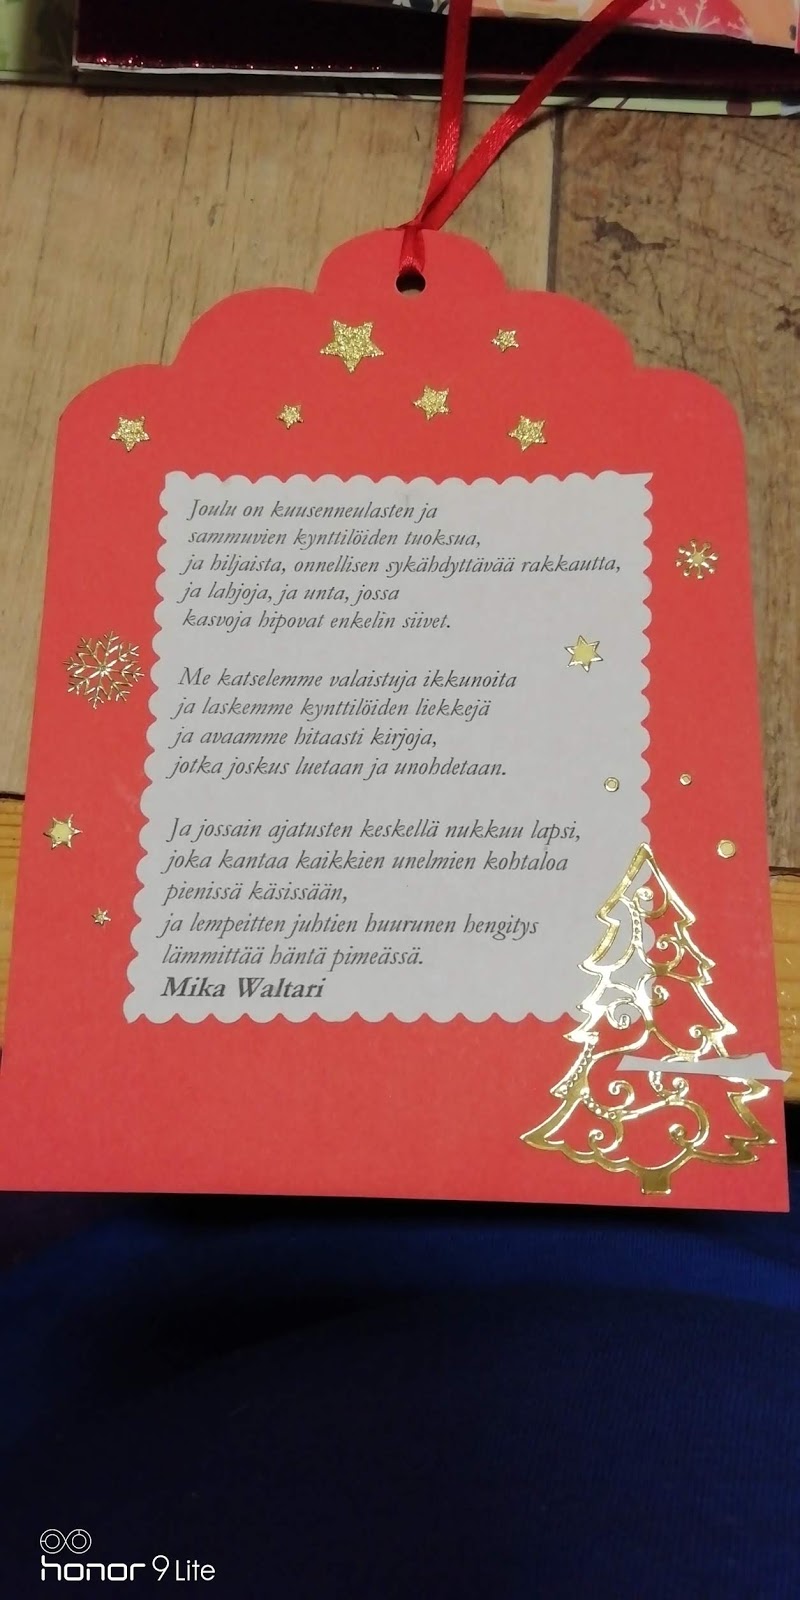 Joulu on kuusenneulasten ja
sammuvien kynttilöiden tuoksua,
ja hiljaista, onnellisen sykähdyttävää rakkautta,
ja lahjoja, ja unta, jossa
kasvoja hipovat enkelin siivet.
Me katselemme valaistuja ikkunoita
ja laskemme kynttilöiden liekkejä
ja avaamme hitaasti kirjoja,
jotka joskus luetaan ja unohdetaan.
Ja jossain ajatusten keskellä nukkuu lapsi,
joka kantaa kaikkien unelmien kohtaloa
pienissä käsissään,
ja lempeitten juhtien huurunen hengitys
lämmittää häntä pimeässä.
Mika Waltari
honor 9 Lite